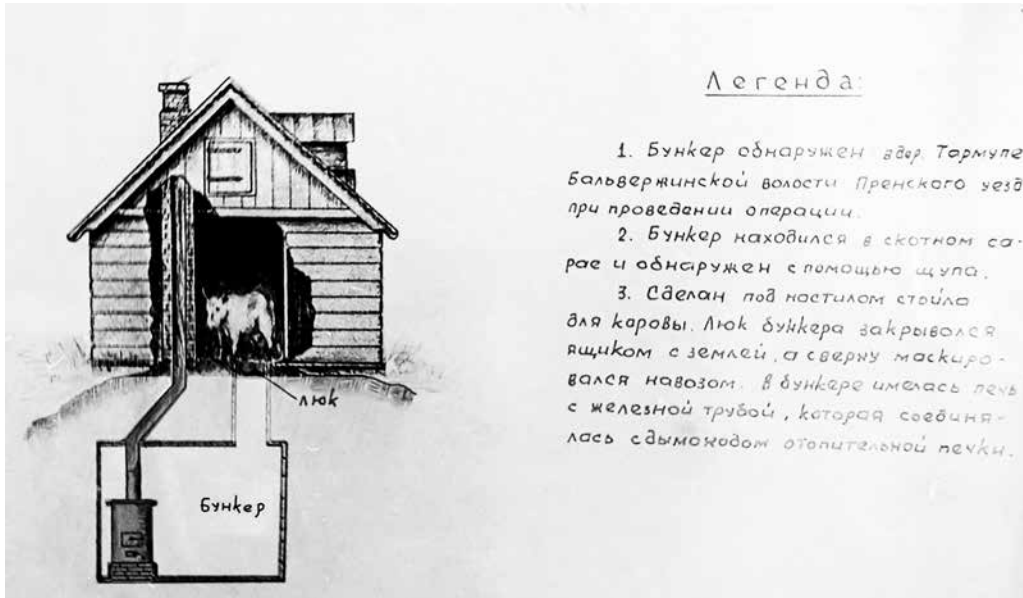 Легенда:
1. Бункер обнаружен в дер. Тормупе
Бальвержинской волости Пренского уезд
при проведении операции.
2. Бункер находился в скотном са-
рае и обнаружен с помощью щупа.
3. Сделан под настилом стойла
для каровы. Люк бункера закрывался
ящиком с землей, а сверху маскиро-
вался навозом. В бункере имелась печь
с железной трубой, которая соединя-
лась с дымоходом отопительной печки.
люк
Бункер